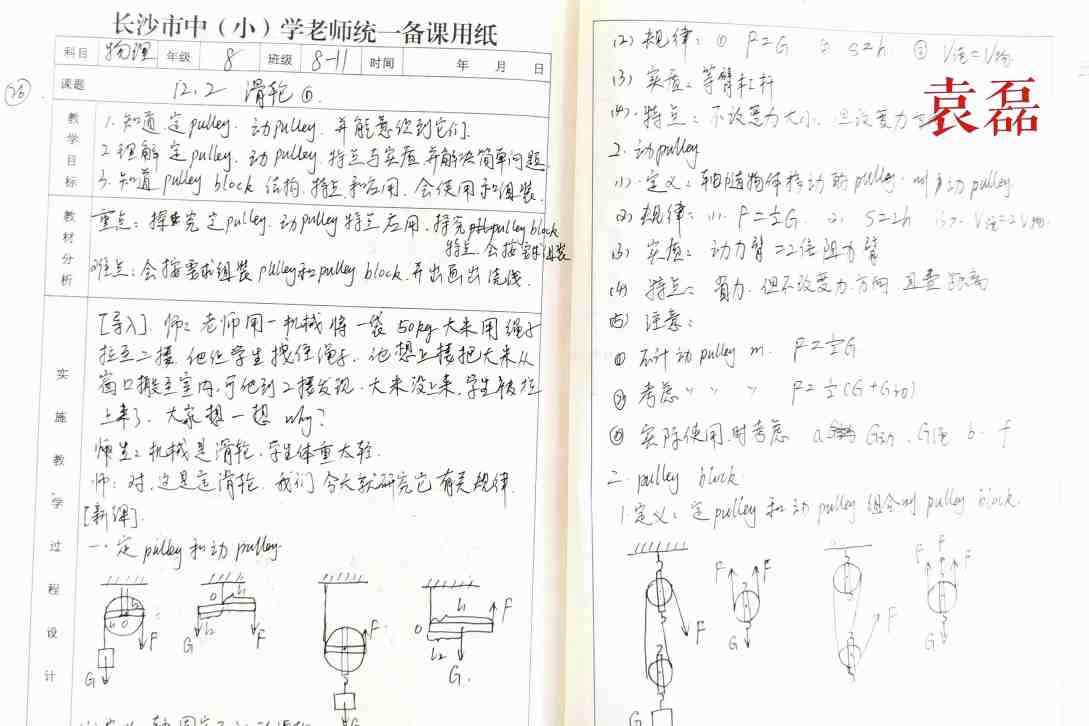 长沙市中（小）学老师统一备课用纸
科目 物理 年级 8 班级 8-11 时间 年 月 日
26
课题 12.2 滑轮①
教学目标
1.知道定pulley.动pulley.并能意识到它们.
2.理解定pulley.动pulley.特点与实质.并解决简单问题.
3.知道pulley block结构.特点和应用.会使用和组装.
教材分析
重点:探究定pulley.动pulley特点应用.探究pulley block
特点.会按要求组装
难点:会按要求组装pulley和pulley block.并画出绕线.
实施教学过程设计
[导入].师:老师用一机械将一袋50kg大米用绳子
拉至二楼.他让学生拽住绳子.他想上楼把大米从
窗口搬至室内.可他到2楼发现.大米没上来.学生被拉
上来了.大家想一想why?
师生:机械是滑轮.学生体重太轻.
师:对.这是定滑轮.我们今天就研究它有关规律.
[新课].
一.定pulley和动pulley.
O F G
O L1 L2 G F
F G
O L1 L2 F G.
(2)规律:① F=G ② S=h ③ V绳=V物
(3)实质:等臂杠杆
(4).特点:不改变力大小.但改变力方
袁磊
2.动pulley
(1).定义:轴随物体移动的pulley.叫动pulley
(2)规律:(1).F=½G. (2) S=2h (3).V绳=2V物.
(3)实质:动力臂=2倍阻力臂
(4)特点:省力.但不改变力方向.且费距离
(5)注意:
① 不计动pulley m. F=½G
② 考虑 〃 〃 〃 F=½(G+G动)
③ 实际使用时考虑 a G动.G绳 b.f
二.pulley block.
1.定义:定pulley和动pulley组合叫pulley block.
F
F F G
F
F F F G